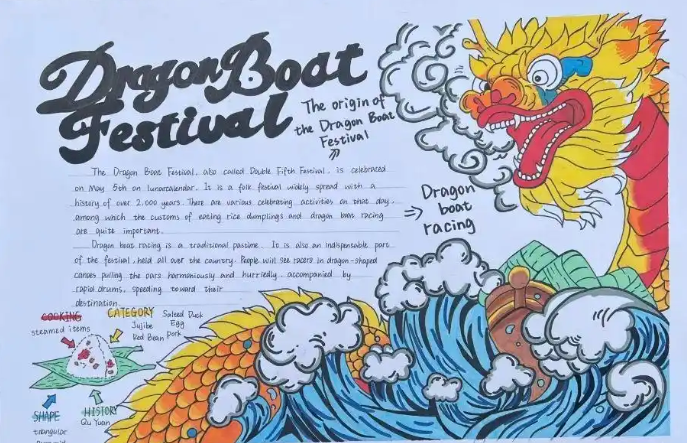 Dragon Boat
Festival
The origin of
the Dragon Boat
Festival
The Dragon Boat Festival, also called Double Fifth Festival, is celebrated
on May 5th on lunarcalendar. It is a folk festival widely spread with a
history of over 2,000 years. There are various celebrating activities on that day,
among which the customs of eating rice dumplings and dragon boat racing
are quite important.
Dragon boat racing is a traditional pastime. It is also an indispensable part
of the festival, held all over the country. People will see racers in dragon-shaped
canoes pulling the oars harmoniously and hurriedly, accompanied by
rapid drums, speeding toward their
destination
Dragon
boat
racing
COOKING
steamed items
CATEGORY
Jujube
Red Bean
Salted Duck
Egg
Pork
SHAPE
HISTORY
Qu Yuan